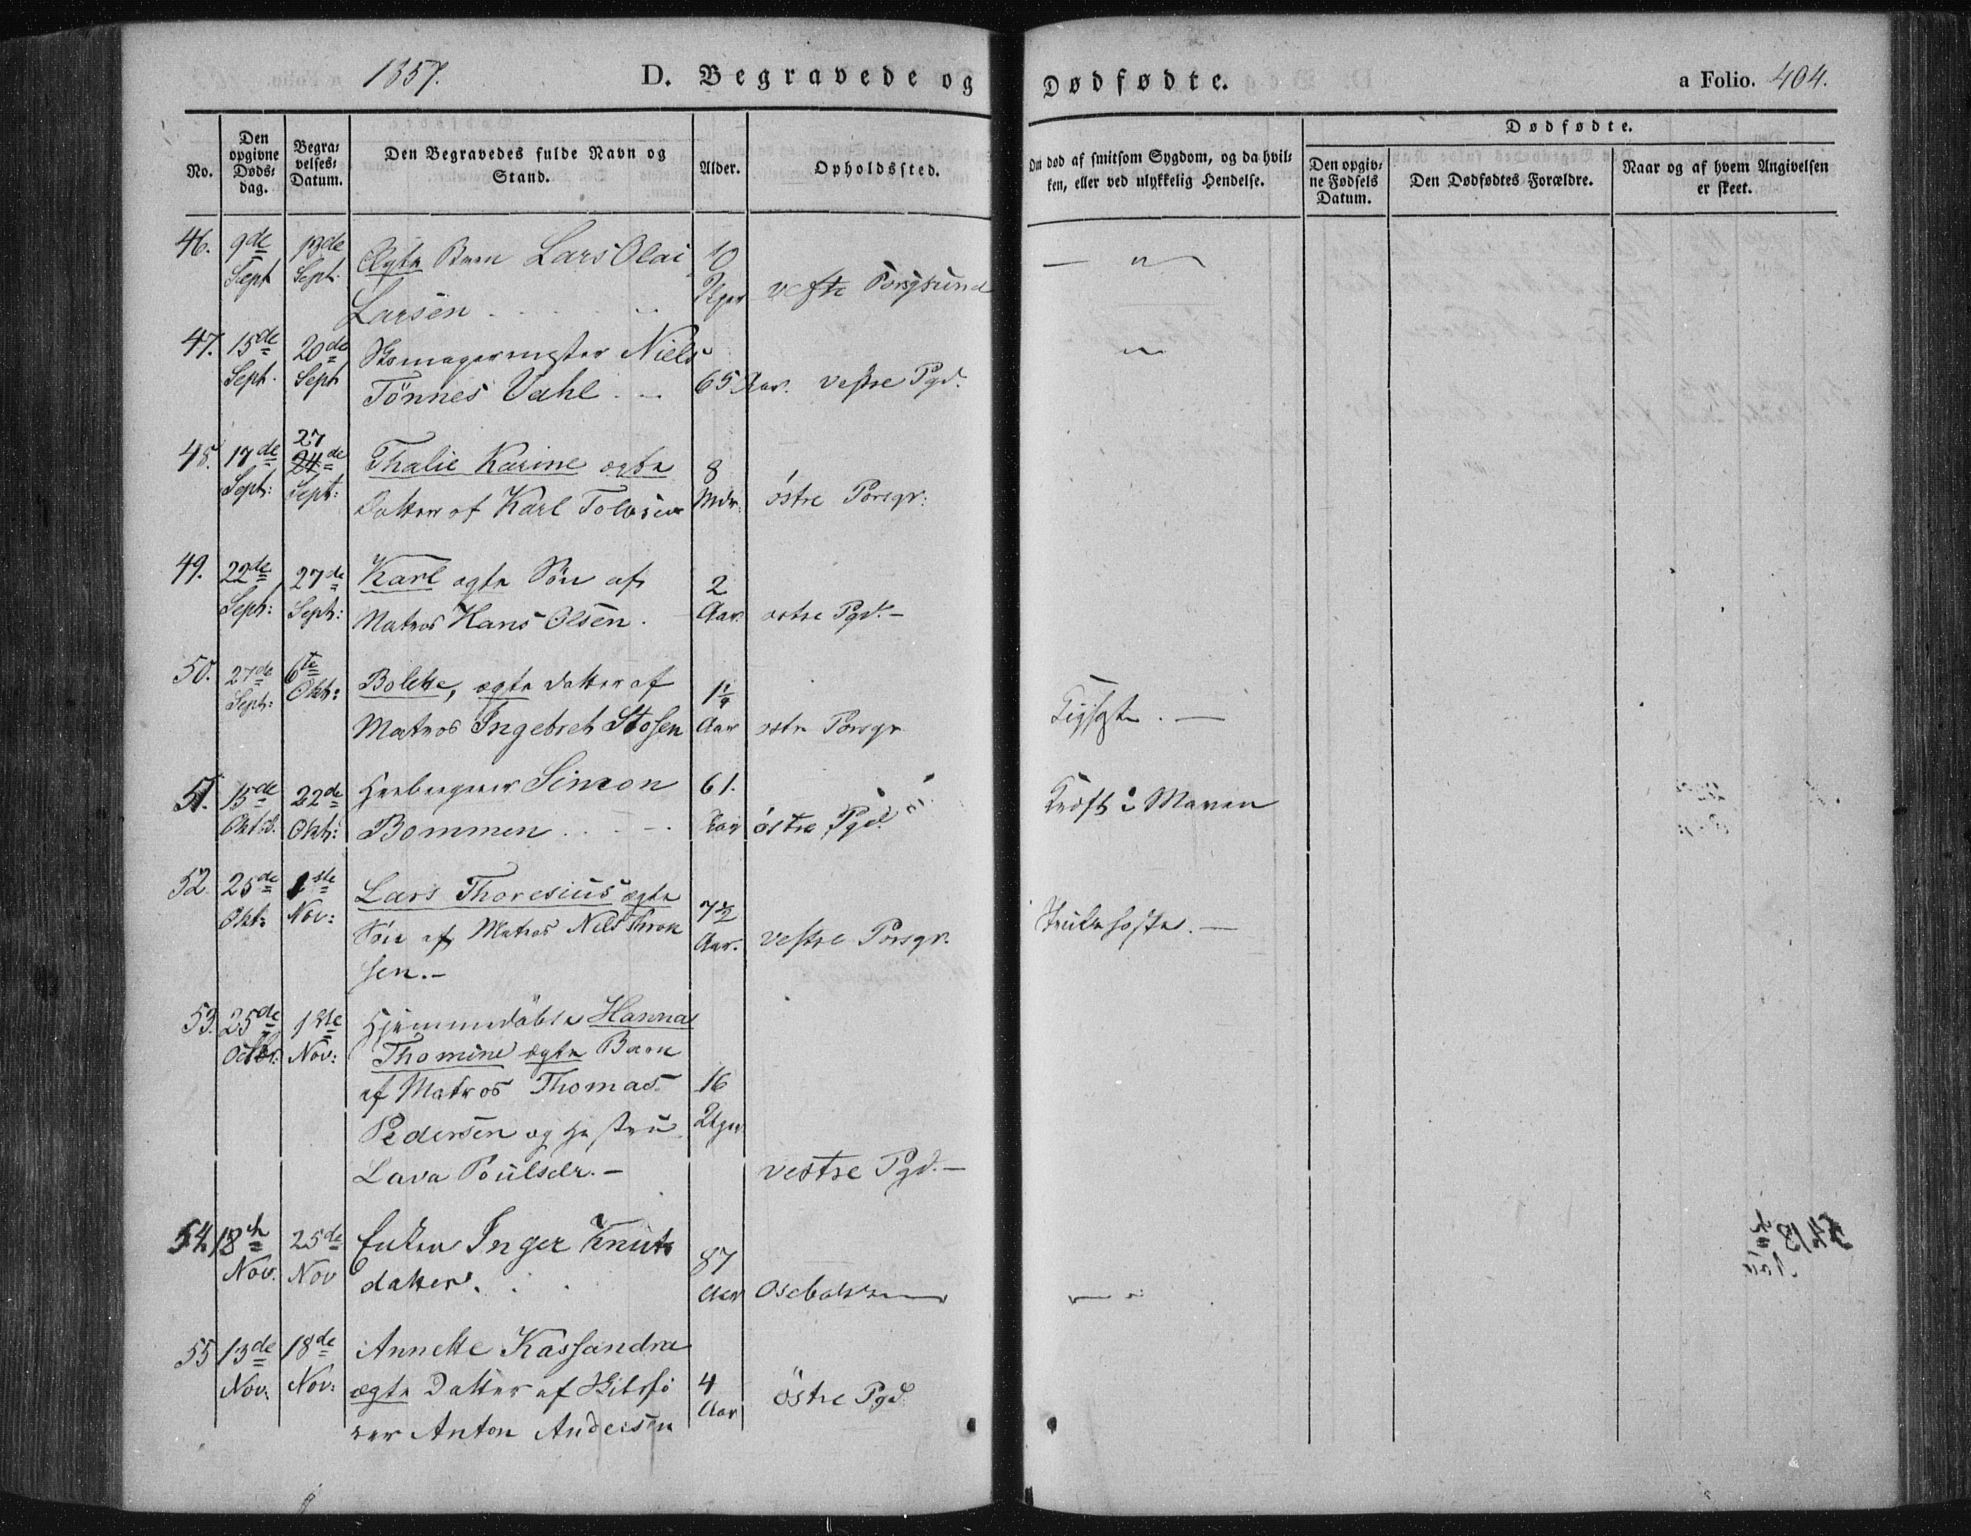 1857.
D. Begravede og Dødfødte.
a Folio. 404.
No.
Den opgivne Døds-dag.
Begra-velses-Datum.
Den Begravedes fulde Navn og Stand.
Alder.
Opholdssted.
Om død af smitsom Sygdom, og da hvil-ken, eller ved ulykkelig Hendelse.
Dødfødte.
Den opgiv-ne Fødsels Datum.
Den Dødfødtes Forældre.
Naar og af hvem Angivelsen er skeet.
46. 9de Sept 13de Sept.
Ægte Barn Lars Olai
Larsen
10 Uger
vestre Porsgrund
47. 15de Sept. 20de Sept
Skomagermester Niels
Tönnes Vahl
65 Aar. vestre Pgd.
48. 17de Sept: 27 24de Sept:
Thalie Karine ægte
Datter af Karl
8 Mdr.
östre Porsgr.
49. 22de Sept: 27de Sept:
Karl ægte Sön af
Matros Hans Olsen.
2 Aar
östre Pgd. –
50. 27de Sept: 6te Okt:
Bolette, ægte Datter af
Matros Ingebret Stosen
1¼ Aar
östre Porsgr
51. 15de 22de Okt:
Simon
Bommen
61. Aar
östre Pgd.
Kræft i Maven
52. 25de Okt: 1ste Nov:
Lars Thoresius ægte
Sön af Matros Nils Thron
sen. –
7½ Aar.
vestre Porsgr.
Strubehoste. –
53. 25de Octbr. 1ste Nov:
Hjemmedöbte Hanna
Thomine ægte Barn
af Matros Thomas
Pedersen og Hustru
Lava Poulsdr. –
16 Uger
vestre Pgd. –
54. 18de Nov. 25de Nov
Enken Inger Knuts
datter.
87 Aar
Osebakken
55 13de Nov. 18de Nov:
Annette Kassandra
ægte Datter af
Anton Andersen
4 Aar
östre Pgd.